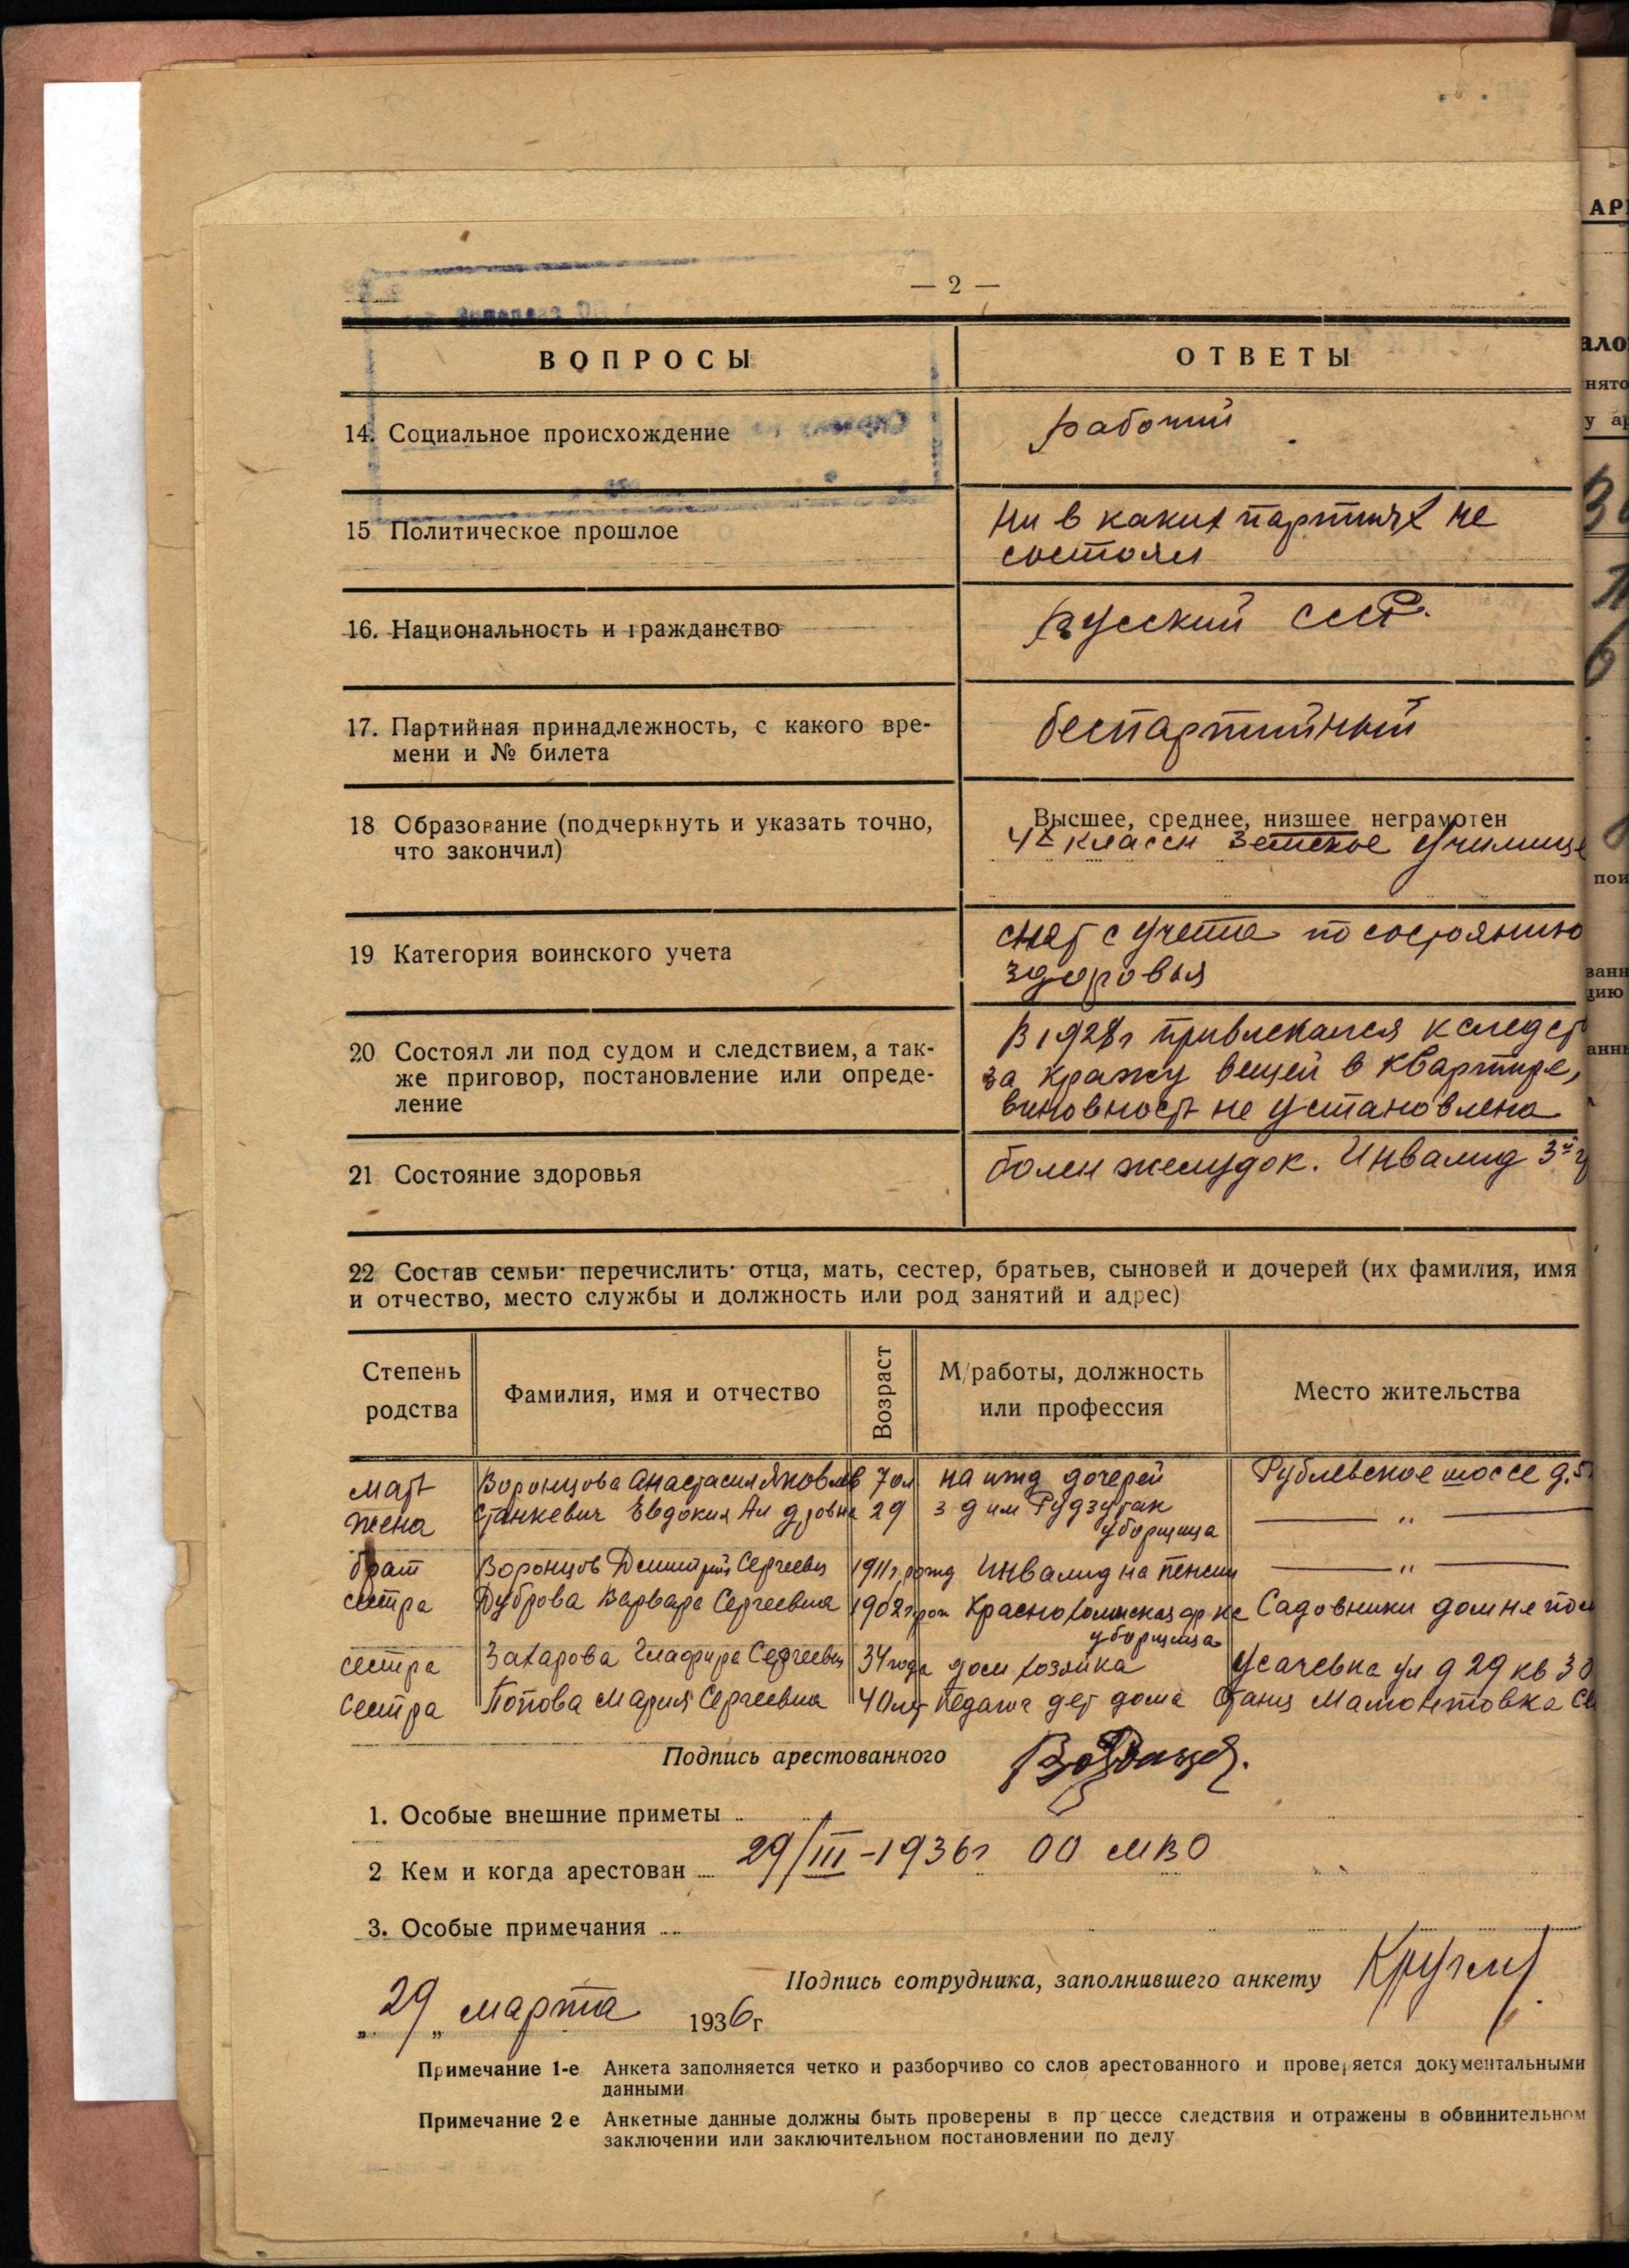 — 2 —
ВОПРОСЫ
ОТВЕТЫ
14. Социальное происхождение
рабочий
15 Политическое прошлое
Ни в каких партиях не
состоял
16. Национальность и гражданство
русский СССР.
17. Партийная принадлежность, с какого вре-
мени и № билета
беспартийный
18 Образование (подчеркнуть и указать точно,
что закончил)
Высшее, среднее, низшее неграмотен
4х классн училище
19 Категория воинского учета
снят с учета по состоянию
здоровья
20 Состоял ли под судом и следствием, а так-
же приговор, постановление или опреде-
ление
В 1928г привлекался к следст
за кражу вещей в квартире,
виновность не установлена
21 Состояние здоровья
болен желудок. Инвалид 3й г
22 Состав семьи: перечислить: отца, мать, сестер, братьев, сыновей и дочерей (их фамилия, имя
и отчество, место службы и должность или род занятий и адрес)
Степень
родства
Фамилия, имя и отчество
Возраст
М/работы, должность
или профессия
Место жительства
мать Воронцова Анастасия Яковлев 70л на ижд дочерей Рублевское шоссе д.5
жена Станкевич Евдокия 29 з д им Рудзутак — „ —
уборщица
брат Воронцов Дмитрий Сергеевич 1911г рожд Инвалид на пенсии — „ —
сестра Дуброва Варвара Сергеевна 1902г рож Краснохолмская Садовники дом не пом
уборщица
сестра Захарова Глафира Сергеевн 34 года дом хозяйка Усачевка ул д 29 кв 30
сестра Попова Мария Сергеевна 40 лет Педагог дет дома Станц Мамонтовка Се
Подпись арестованного
1. Особые внешние приметы
2 Кем и когда арестован 29/III-1936г ОО МВО
3. Особые примечания
Подпись сотрудника, заполнившего анкету
„29„ марта 1936г
Примечание 1-е Анкета заполняется четко и разборчиво со слов арестованного и проверяется документальными
данными
Примечание 2 е Анкетные данные должны быть проверены в процессе следствия и отражены в обвинительном
заключении или заключительном постановлении по делу